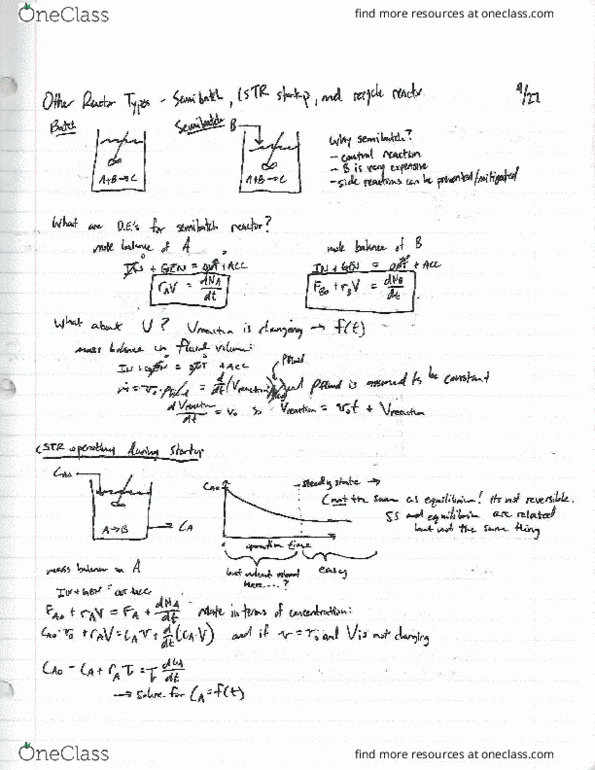 OneClass
find more resources at oneclass.com
Other Reactor Types - Semibatch, CSTR startup, and recycle reactor
9/27
Batch
Semibatch B
A+B→C
A+B→C
Why semibatch?
- control reaction
- B is very expensive
- side reactions can be prevented/mitigated
What are D.E.'s for semibatch reactor?
mole balance of A
IN + GEN = OUT + ACC
r_A V = dN_A/dt
mole balance of B
IN + GEN = OUT + ACC
F_B0 + r_B V = dN_B/dt
What about V? V_reaction is changing → f(t)
mass balance on fluid volume:
IN + GEN = OUT + ACC
and ρ_fluid is assumed to be constant
dV_reaction/dt = v_0 so V_reaction = v_0 t + V_reaction
CSTR operating during startup
C_A0
A→B
C_A
C_A0
steady state →
(not the same as equilibrium! its not reversible.
SS and equilibrium are related
but not the same thing
operation time
but what about
here....?
easy
mass balance on A
IN + GEN = OUT + ACC
F_A0 + r_A V = F_A + dN_A/dt
in terms of concentration:
C_A0 v_0 + r_A V = C_A v + d/dt (C_A V) and if v = v_0 and V is not changing
C_A0 - C_A + r_A τ = τ dC_A/dt
→ solve for C_A = f(t)
OneClass
find more resources at oneclass.com